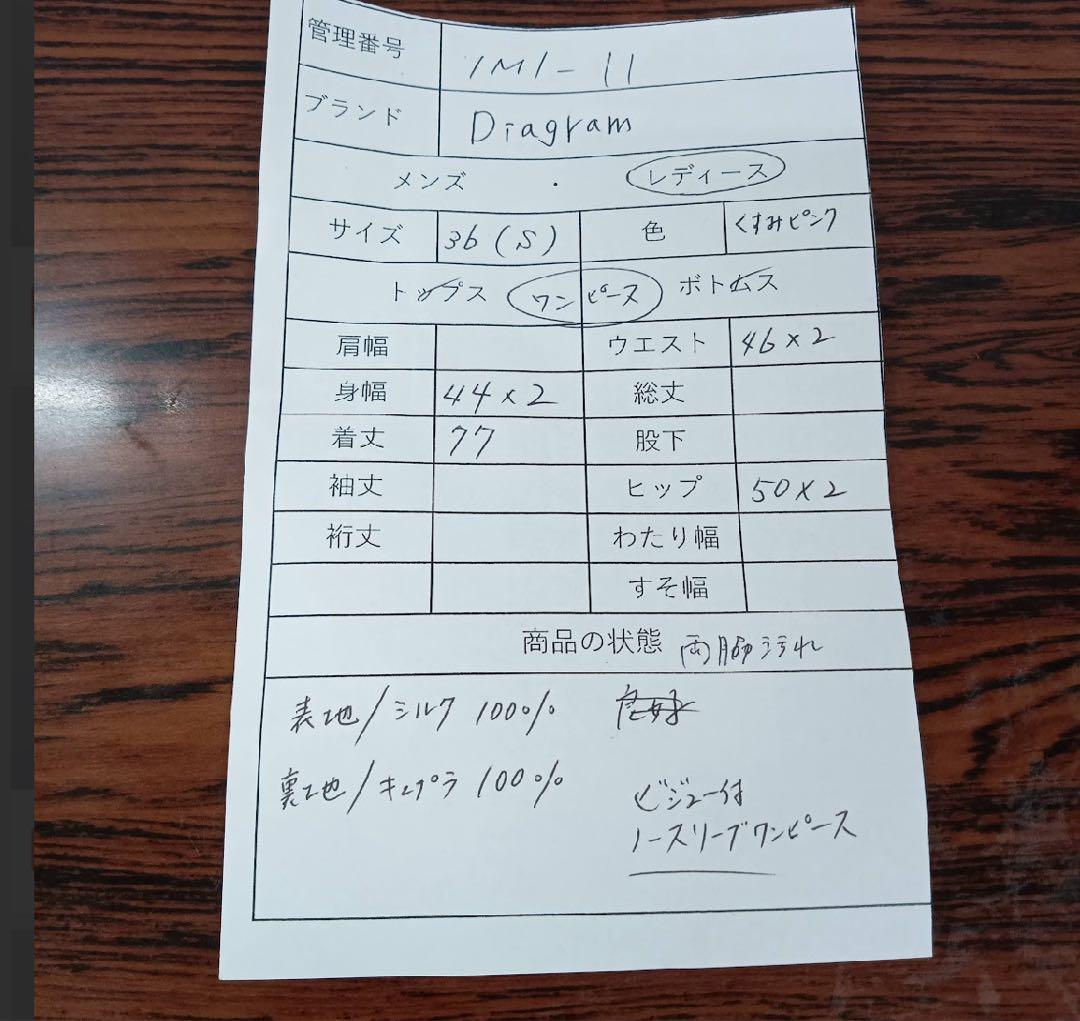 管理番号 1M1-11
ブランド Diagram
メンズ ・ レディース
サイズ 36(S) 色 くすみピンク
トップス ワンピース ボトムス
肩幅 ウエスト 46×2
身幅 44×2 総丈
着丈 77 股下
袖丈 ヒップ 50×2
裄丈 わたり幅
すそ幅
商品の状態 両脇汚れ
表地/シルク 100%
裏地/キュプラ 100%
ビジュー付
ノースリーブワンピース